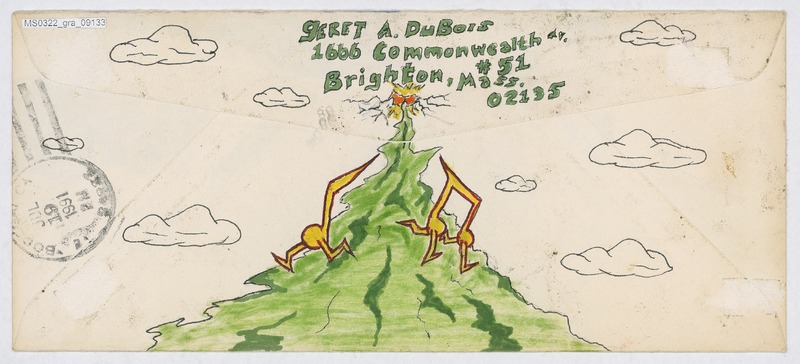 MS0322_gra_09133
GERET A. DuBois
1666 Commonwealth av.
#51
Brighton, Mass.
02135
PM
19
JUL
1991